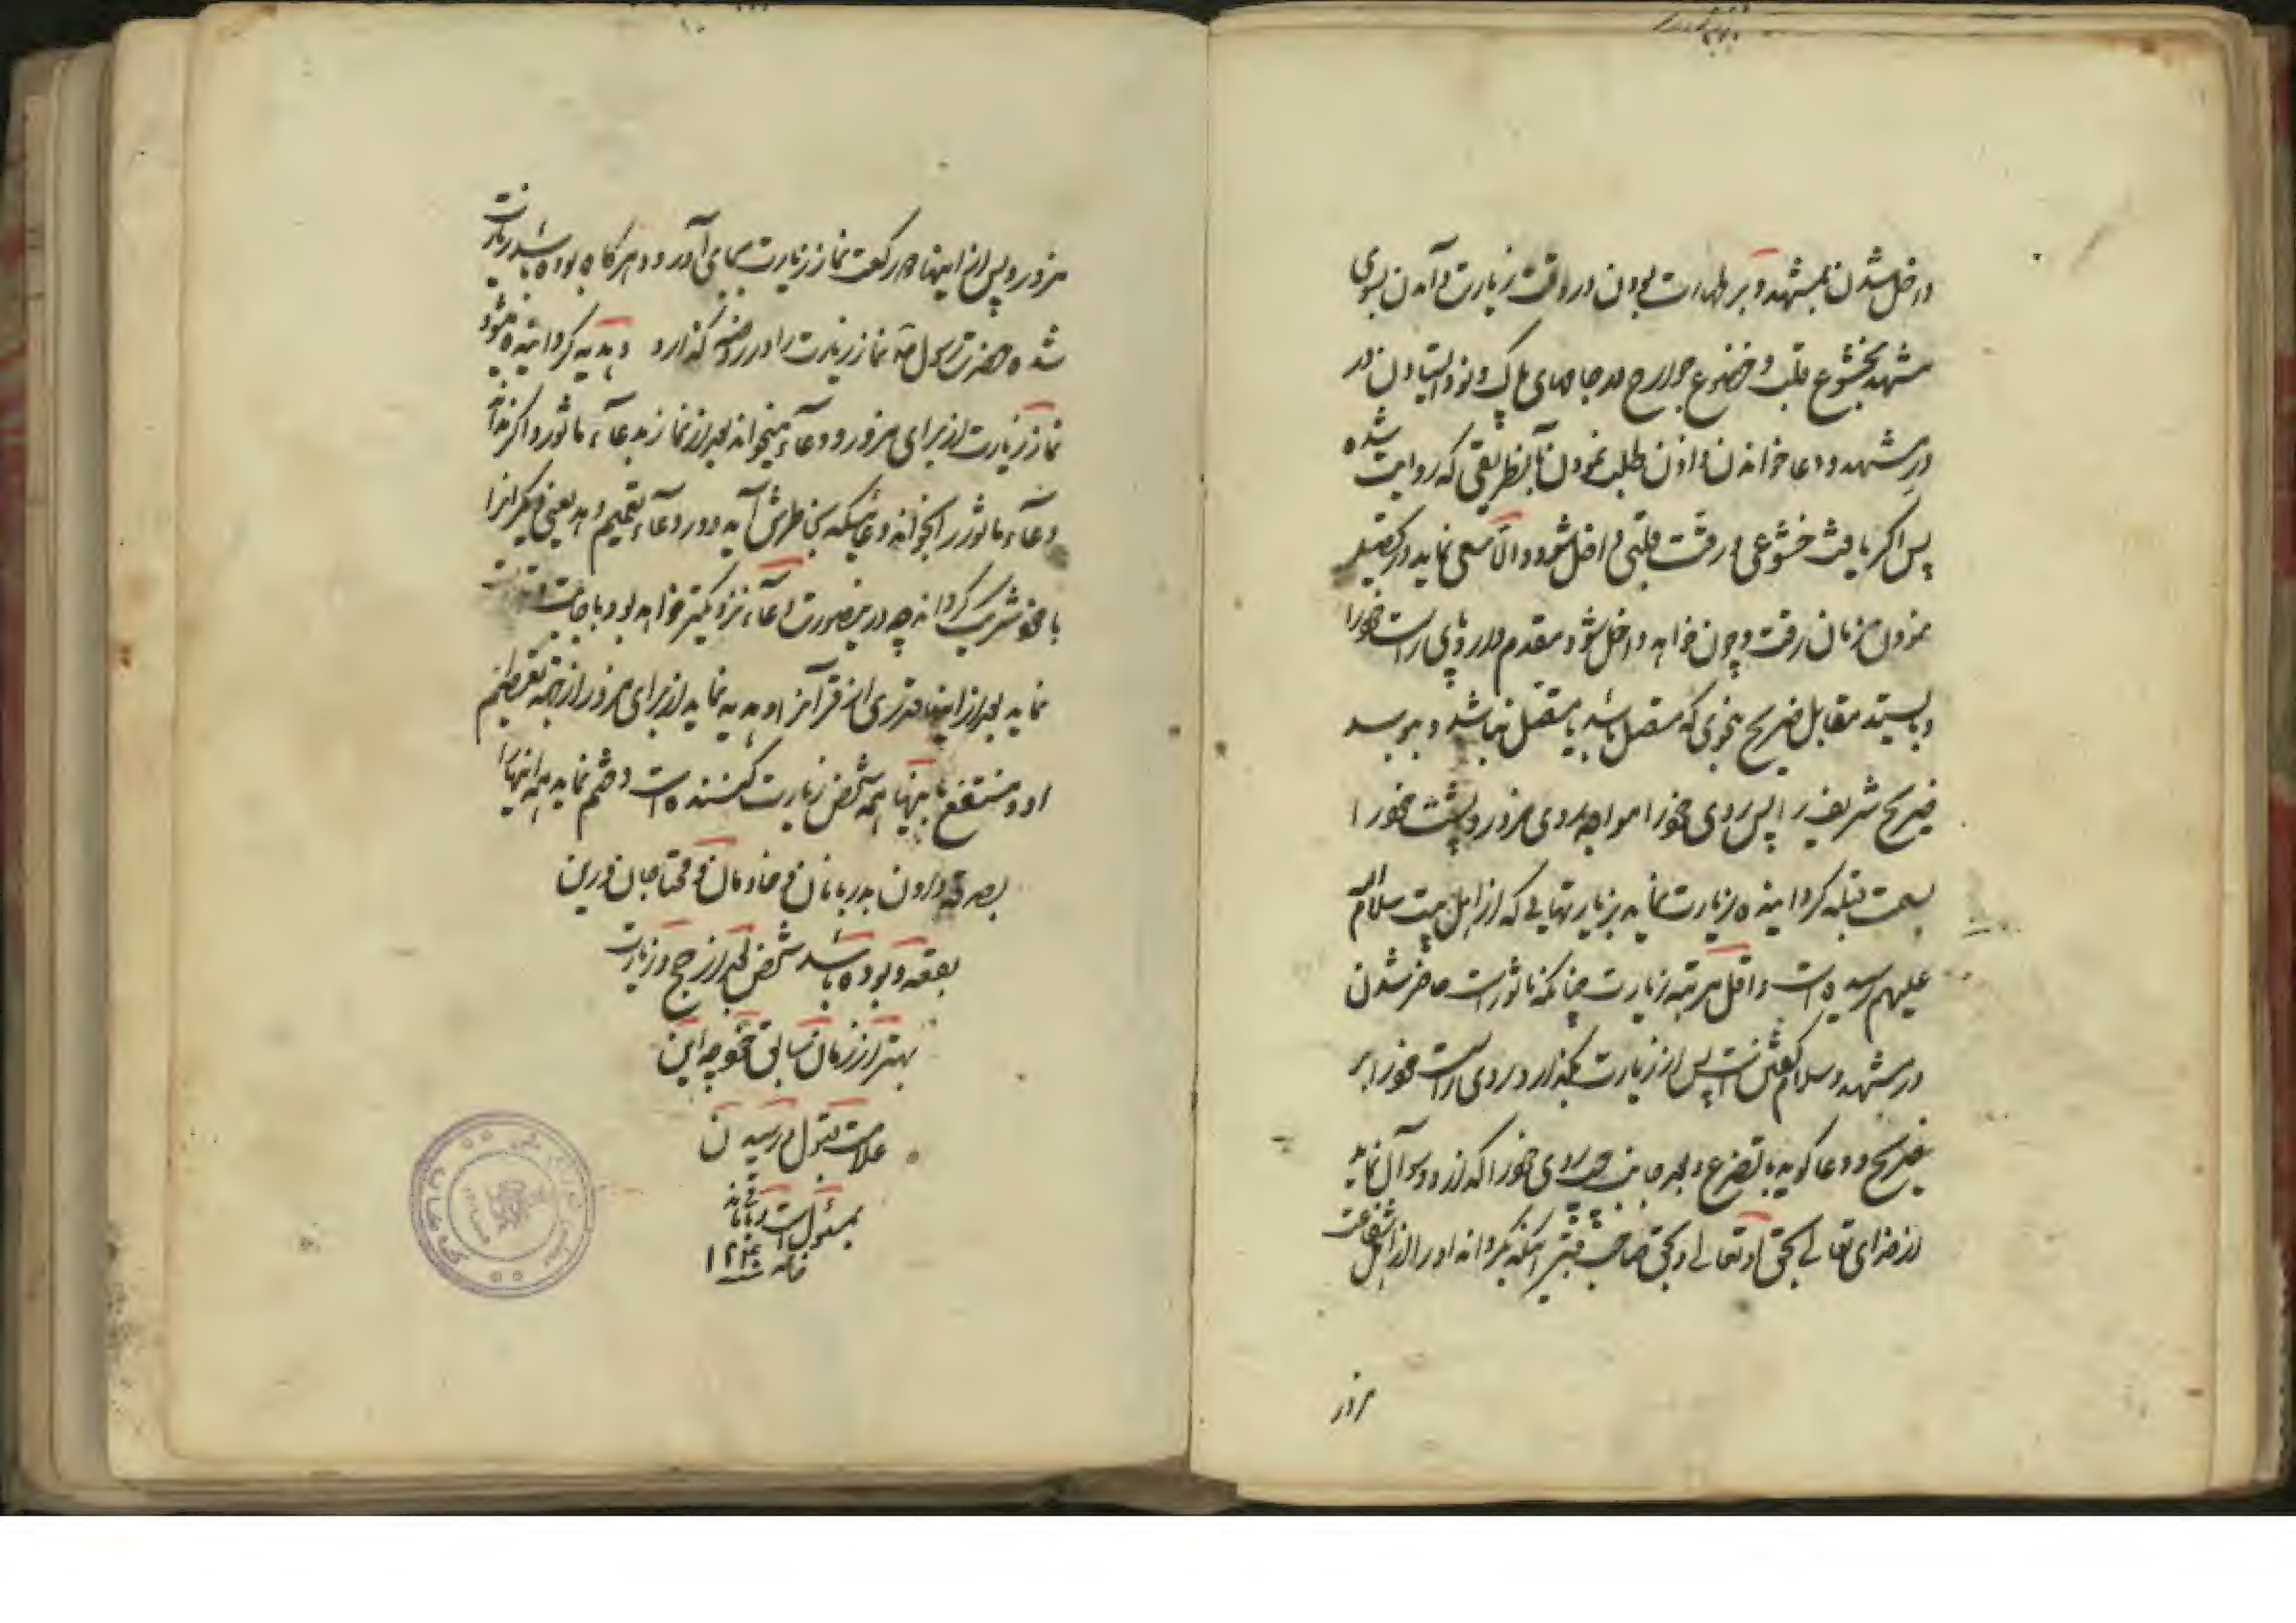 داخل شدن بمشهد و بر طهارت بودن در وقت زیارت و آمدن بسوی
مشهد بخشوع قلب و خضوع جوارح در جامهای پاک و نو و ایستادن در
در مشهد و دعا خواندن و اذن طلب نمودن بآنطریقی که روایت شده
پس اگر یافت خشوعی و رقت قلبی داخل شود و الا سعی نماید در تحصیل
نمودن زمان رقت و چون خواهد داخل شود مقدم دارد پای راست خود را
و بایستد مقابل ضریح بنحوی که متصل باشد یا متصل نباشد و ببوسد
ضریح شریف را پس روی خود را مواجه روی مزور و پشت خود را
بسمت قبله گردانیده زیارت نماید بزیارتهایی که از اهل بیت سلام الله
علیهم رسیده است و اقل مرتبه زیارت چنانکه ماثور است حاضر شدن
در مشهد و سلام گفتن است پس از زیارت بگذارد روی راست خود را بر
ضریح و دعا گوید با تضرع و بعد جانب چپ روی خود را گذارد و سوآل نماید
از خدای تعالی بحق او تعالی و بحق صاحب قبر اینکه بگرداند او را از اهل شفاعت
مزور
مزور و پس از اینها دو رکعت نماز زیارت بجای آورد و هر گاه بوده باشد زیارت
شده حضرت رسول ص نماز زیارت را در روضه گذارد و هدیه گردانیده میشود
نماز زیارت از برای مزور و دعآء میخواند بعد از نماز بدعآء ماثور و اگر نداند
دعآء ماثور را بخواند دعائیکه بخاطرش آید و در دعآء تعمیم دهد یعنی دیگرانرا
با خود شریک گرداند چه در اینصورت دعآء نزدیکتر خواهد بود باجابت و تلاوت
نماید بعد از اینها قدری از قرآن و هدیه نماید از برای مزور از جهة تعظیم
او و منتفع باینها همه شخص زیارت کننده است و ختم نماید همه اینها را
بصدقه دادن بدربانان و خادمان و محتاجان درین
بقعه و بوده باشد شخص بعد از حج و زیارت
بهتر از زمان سابق خود چه این
علامت قبول و رسیدن
بمسئول است
۱۲۴۰